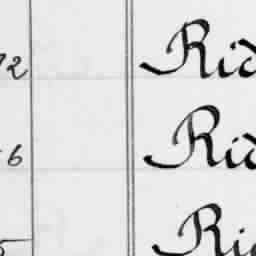 72 Rid
6 Rid
5 Rid